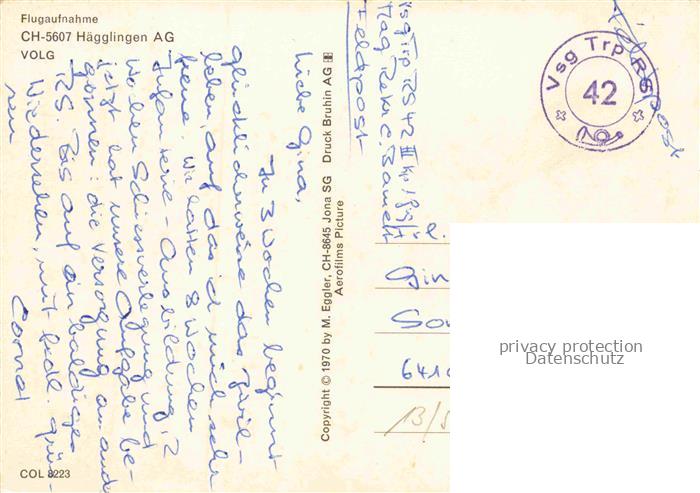 Flugaufnahme
CH-5607 Hägglingen AG
VOLG
Liebe Gina,
In 3 Wochen beginnt
glücklicherweise das Zivil-
leben, auf das ich mich sehr
freue. Wir hatten 8 Wochen
Infanterie-Ausbildung, 2
Wochen Schiessverlegung und
jetzt hat unsere Aufgabe be-
gonnen: die Versorgung an and.
RS. Bis auf ein baldiges
Wiedersehen, mit frdl. Grü-
ssen
Conrad
COL 8223
Copyright © 1970 by M. Eggler, CH-8645 Jona SG Druck Bruhin AG
Aerofilms Picture
Vsg Trp RS 42 III
Feldpost
Feldpost
Vsg Trp RS
42
Gin
6410
13/5
privacy protection
Datenschutz